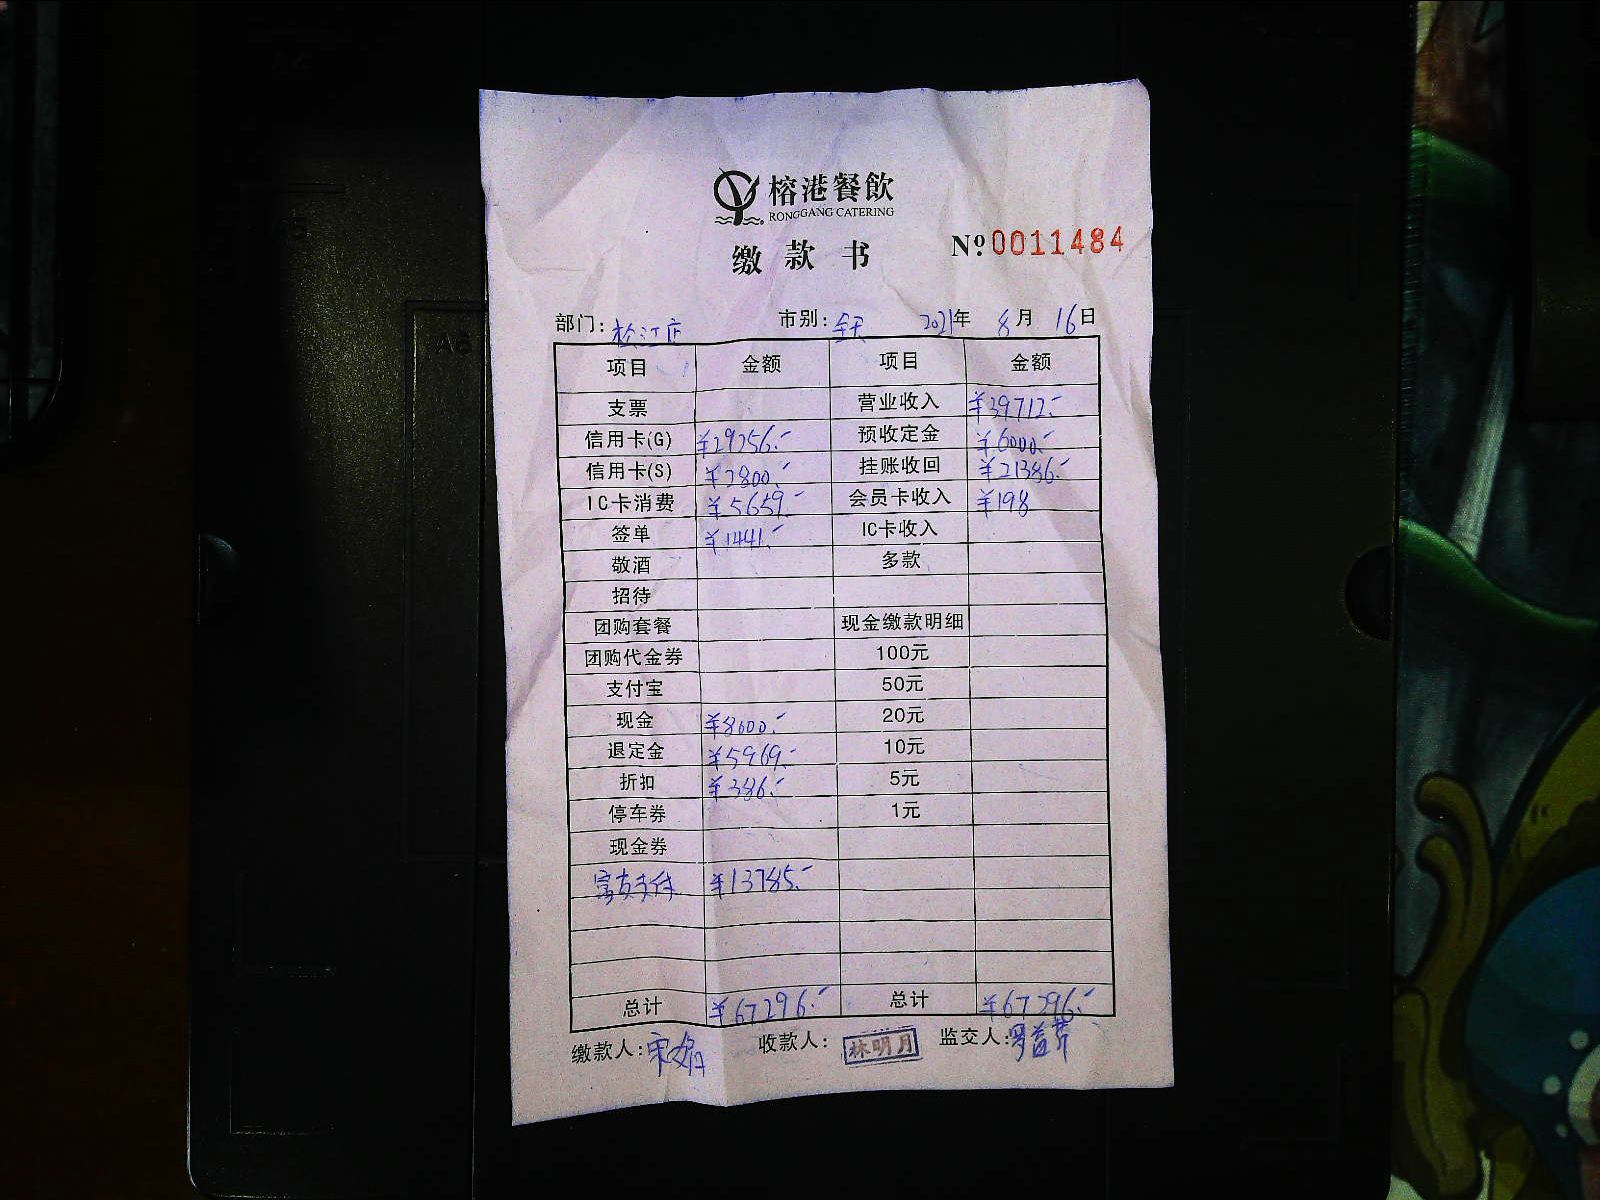 榕港餐飲
RONGGANG CATERING
缴款书 Nº0011484
部门：松江店 市别：全天 2021年 8月 16日
项目 金额 项目 金额
支票 营业收入 ¥39712.-
信用卡(G) ¥29256.- 预收定金 ¥6000.-
信用卡(S) ¥2800.- 挂账收回 ¥21386.-
IC卡消费 ¥5659.- 会员卡收入 ¥198
签单 ¥1441.- IC卡收入
敬酒 多款
招待
团购套餐 现金缴款明细
团购代金券 100元
支付宝 50元
现金 ¥8000.- 20元
退定金 ¥5969.- 10元
折扣 ¥386.- 5元
停车券 1元
现金券
富友支付 ¥13785.-
总计 ¥67296.- 总计 ¥67296.-
缴款人： 收款人：林明月 监交人：